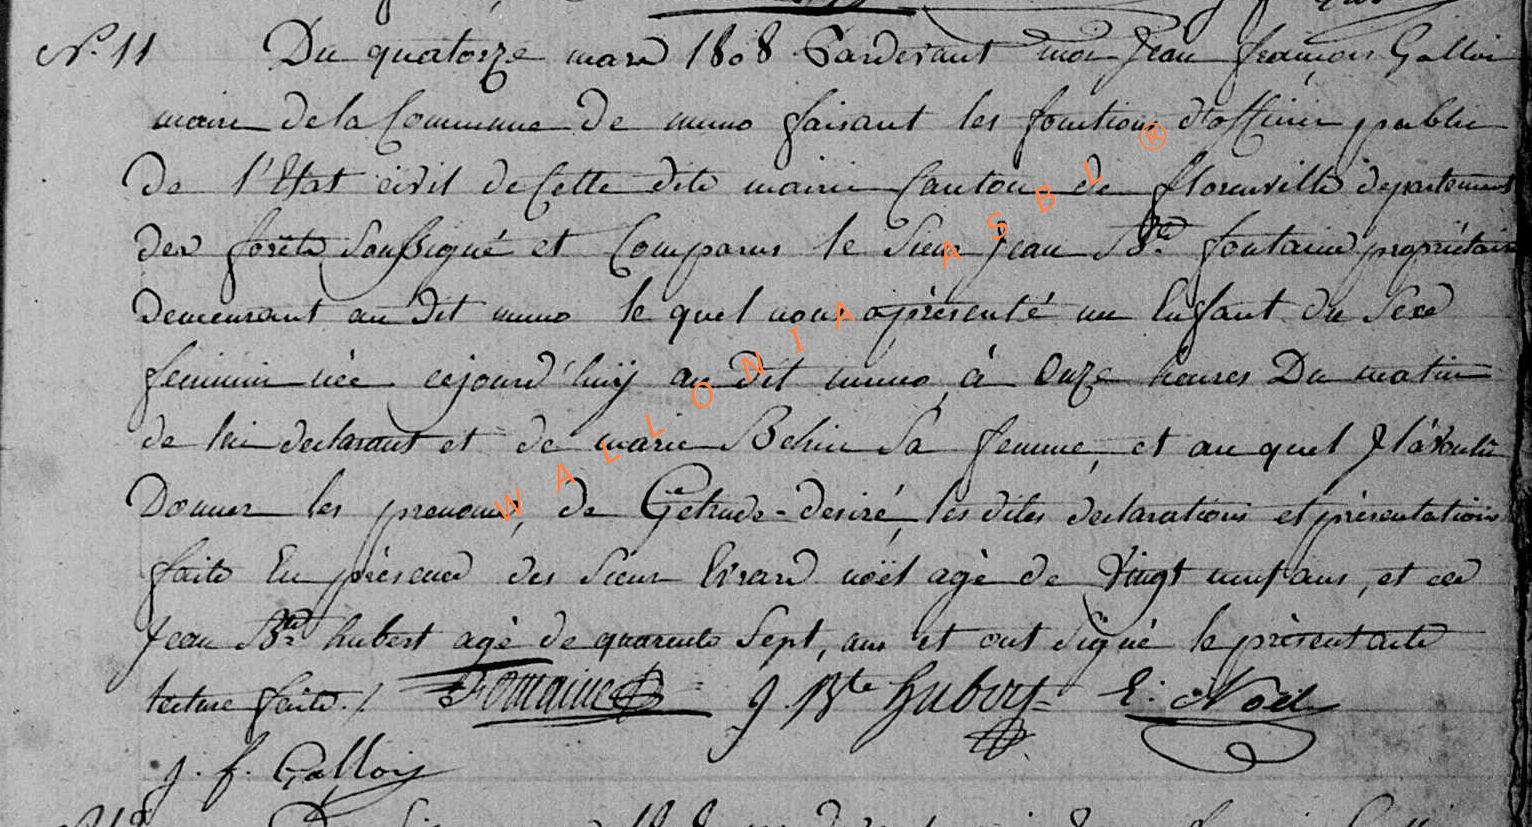 N.° 11 Du quatorze mars 1808 Pardevant moi Jean françois Gallois
maire de la Commune de muno faisant les fonctions d'officier public
de l'Etat civil de Cette dite mairie Canton de florenville departement
des forêts, soussigné est Comparus le Sieur Jean Bte fontaine propriétaire
demeurant au dit muno le quel nous à présenté un Enfant du Sexe
feminin née cejourd'huÿ au dit muno, à Onze heures Du matin
de lui declarant et de marie Behin Sa femme, et au quel Il à voulu
Donner les prenoms, de Getrude-desiré, les dites declarations et présentations
faite En présence des Sieur Evrard noël agé de Vingt neuf ans, et de
Jean Bte hubert agé de quarente Sept, ans et ont Signé le présent acte
lecture faite ./. Fontaine J. Bte Hubert E: Noël
J. f. Gallois
WALLONIA ASBL ®